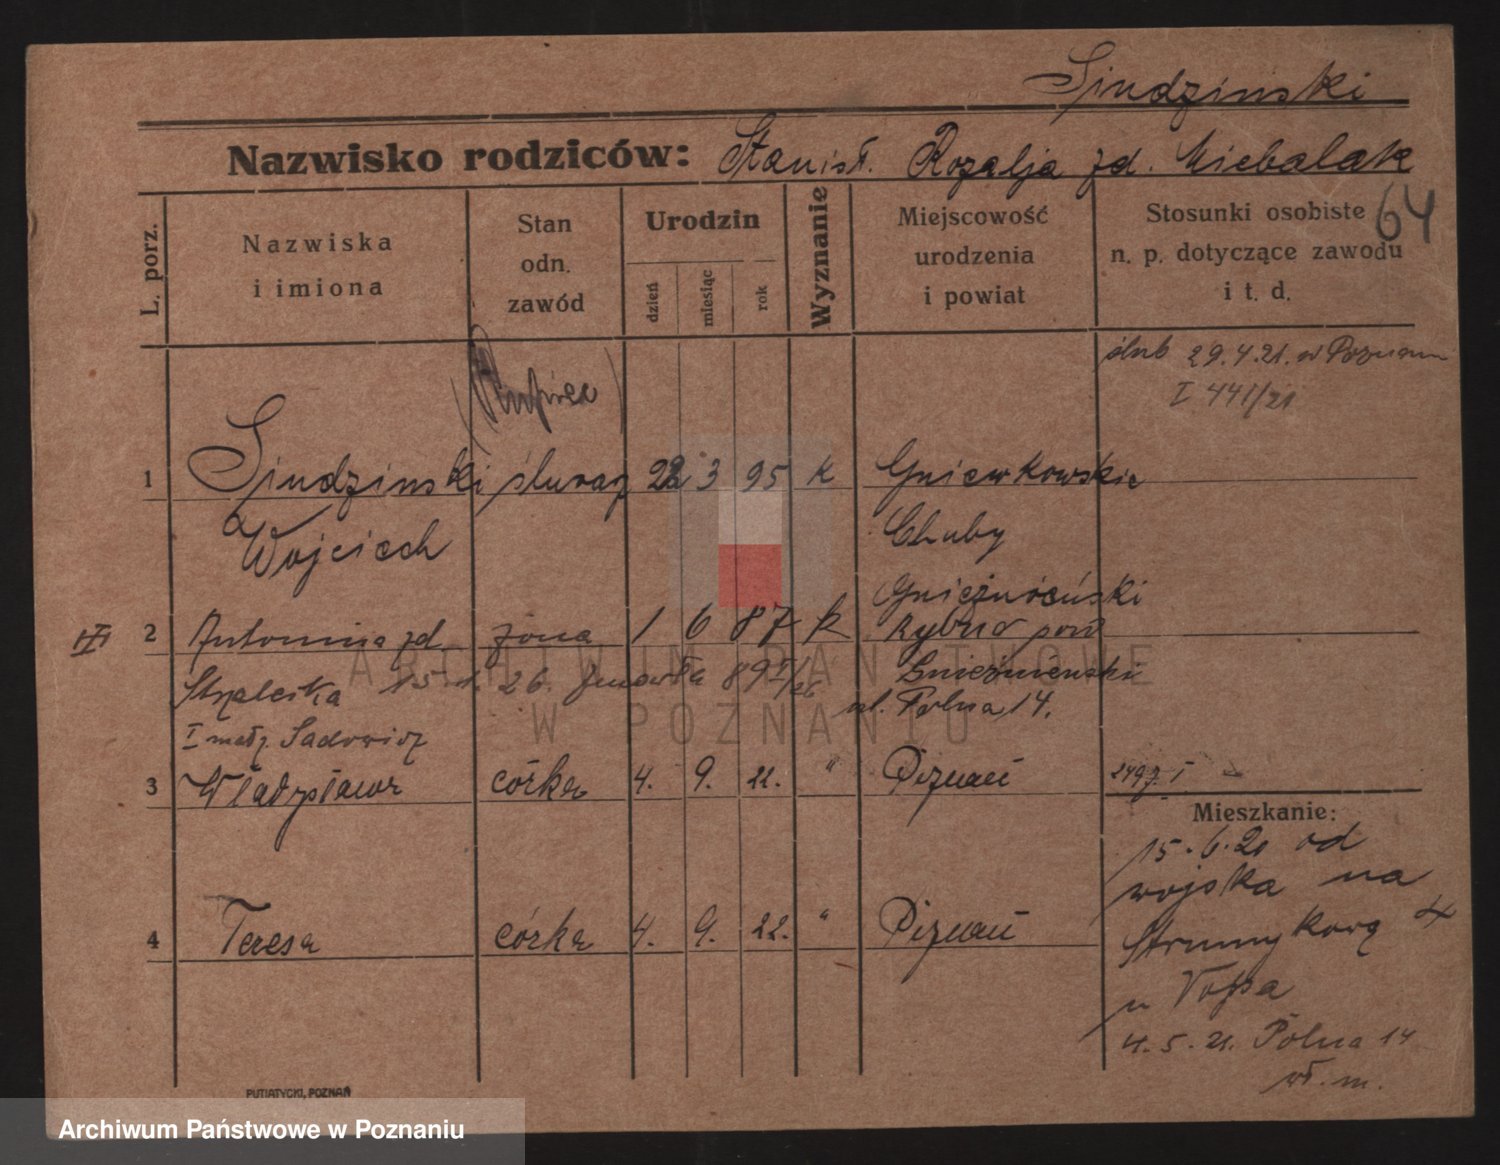 Sindzinski
Nazwisko rodziców: Stanisł. Rozalja zd. Michalak
64
L. porz.
Nazwiska
i imiona
Stan
odn.
zawód
Urodzin
dzień
miesiąc
rok
Wyznanie
Miejscowość
urodzenia
i powiat
Stosunki osobiste
n. p. dotyczące zawodu
i t. d.
ślub 29.4.21. w Poznaniu
I 441/21
(kupiec)
1 Sindzinski ślusarz 22 3 95 k Gniewkowskie
Wojciech Chuby
Gnieźnieński
2 Antonina zd. żona 1 6 87 k Rybno pow
III
Strzelecka 15.1.26. zmarła 89 I/26 Gnieźnienski
ul. Polna 14.
I małż. Sadowicz
3 Władysława córka 4. 9. 22. " Poznań
Mieszkanie:
15.6.20 od
wojska na
4 Teresa córka 4. 9. 22. " Poznań
Strumykową 4
u
4.5.21. Polna 14
wł. m.
PUTIATYCKI, POZNAŃ
ARCHIWUM PAŃSTWOWE
W POZNANIU
Archiwum Państwowe w Poznaniu